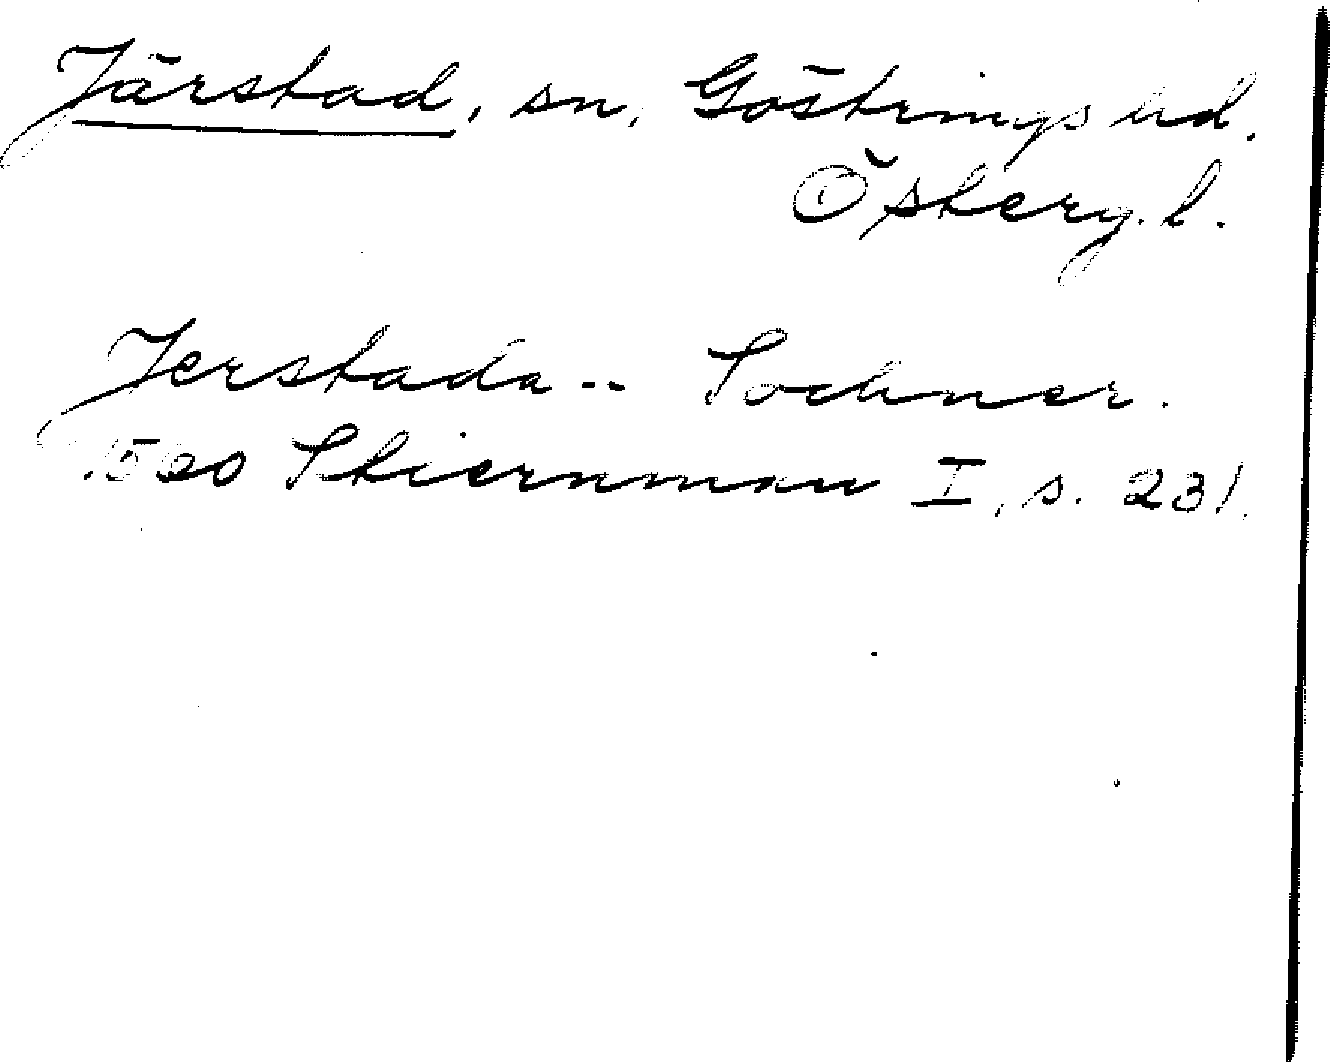 Järstad, sn, Göstrings hd.
Österg. l.
Jerstada-- Sochner.
1500 Stiernman I, s. 231.